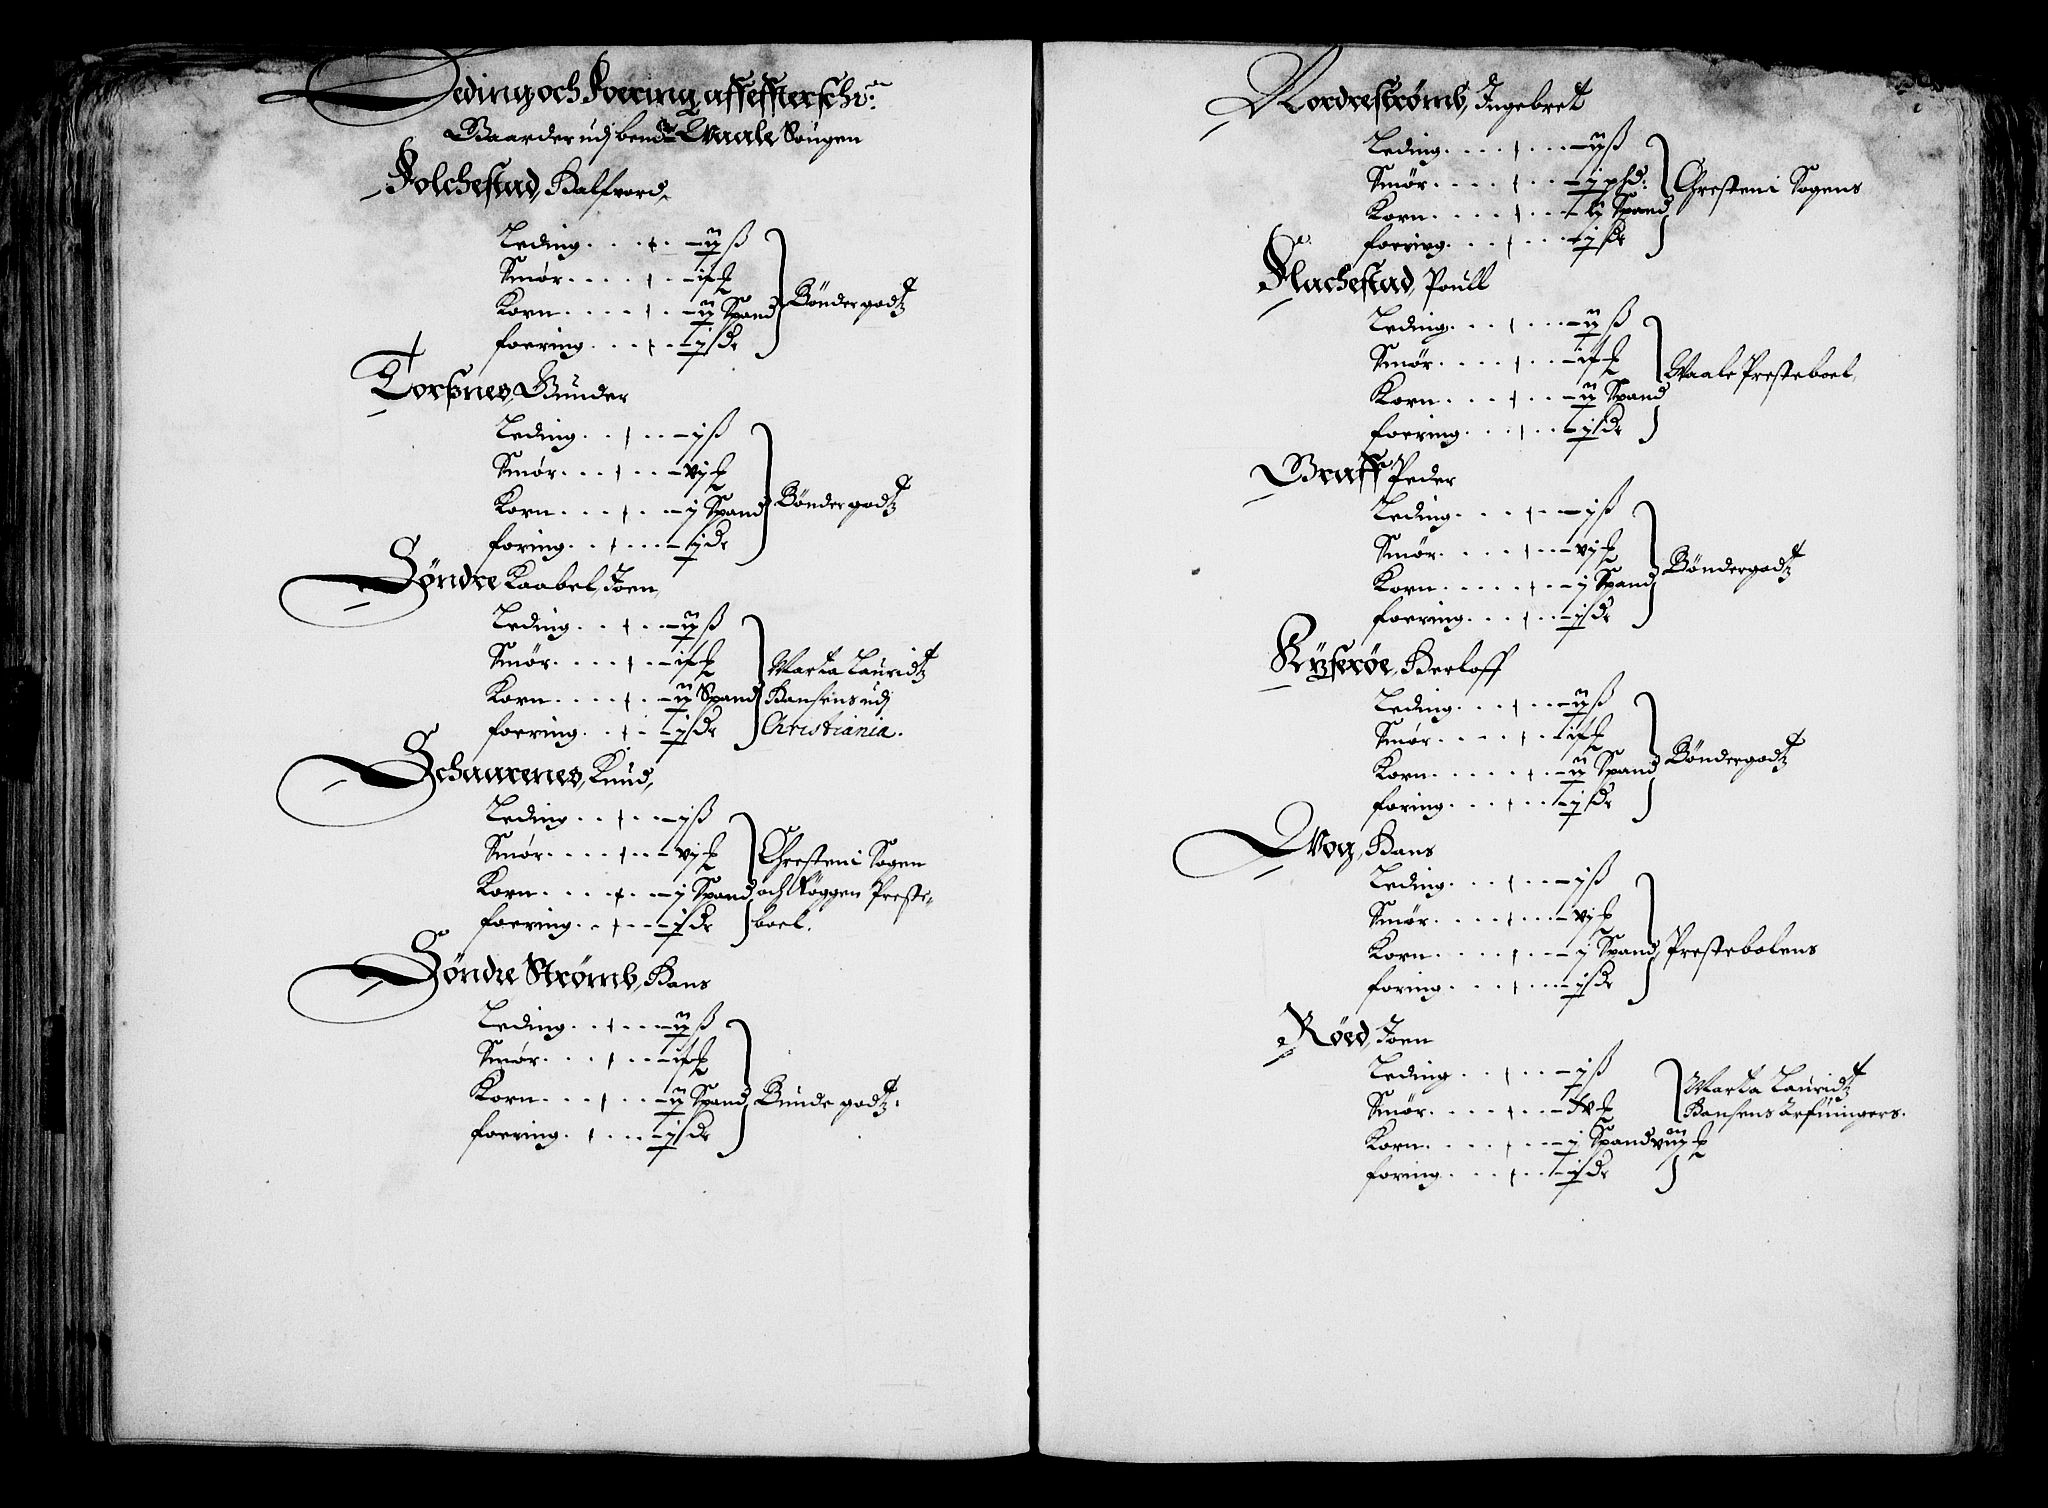 Leding och Foering aff effterschr:
Gaarder udj bemte Waale Sougen
Folchestad, Halfvord,
Leding . . . . . ij ß
Smør . . . . .
Korn . . . . . ij Spand
foering . . . . j sde
Bøndergodtz
Torsnes, Gunder
Leding . . . . j ß
Smør . . . . vj
Korn . . . . . j Spand
foring . . . . j de
Bøndergodtz
Søndre Kaabel, Joen,
Leding . . . . ij ß
Smør . . . . .
Korn . . . . . ij Spand
foering . . . . j sde
Marta Lauridtz
Hansens udj
Christiania.
Schaarenes, Knud,
Leding . . . . j ß
Smør . . . . . vj
Korn . . . . . j Spand
foering . . . . j sde
Chresteni Sogen
och Røggen Preste-
boel.
Søndre Strømb, Hans
Leding . . . . ij ß
Smør . . . . .
Korn . . . . . ij Spand
foering . . . . j sde
Bunde godtz.
Nordrestrømb, Ingebret
Leding . . . . . ij ß
Smør . . . . . j phd:
Korn . . . . . ij Spand
foering . . . . . j sde
Chresteni Sogens
Flachestad, Poull
Leding . . . . . ij ß
Smør . . . . .
Korn . . . . . ij Spand
foering . . . . j sde
Waale Presteboel,
Graff Peder
Leding . . . . j ß
Smør . . . . . vj
Korn . . . . . j Spand
foering . . . . j sde
Bøndergodtz
Ryserøe, Herloff
Leding . . . . . ij ß
Smør . . . . .
Korn . . . . . ij Spand
foring . . . . . j sde
Bøndergodtz
Wog, Hans
Leding . . . . . j ß
Smør . . . . . vj
Korn . . . . . j Spand
foring . . . . . j sde
Prestebolens
Røed, Joen
Leding . . . . . j ß
Smør . . . . .
Korn . . . . . j Spand
foring . . . . . j sde
Marta Lauridtz
Hansens arfuingers.